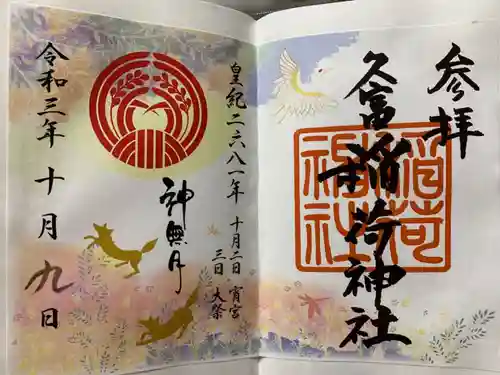 参拝
久富稲荷神社
稲荷
神社
皇紀二六八一年 十月二日 宵宮
三日 大祭
神無月
令和三年 十月九日